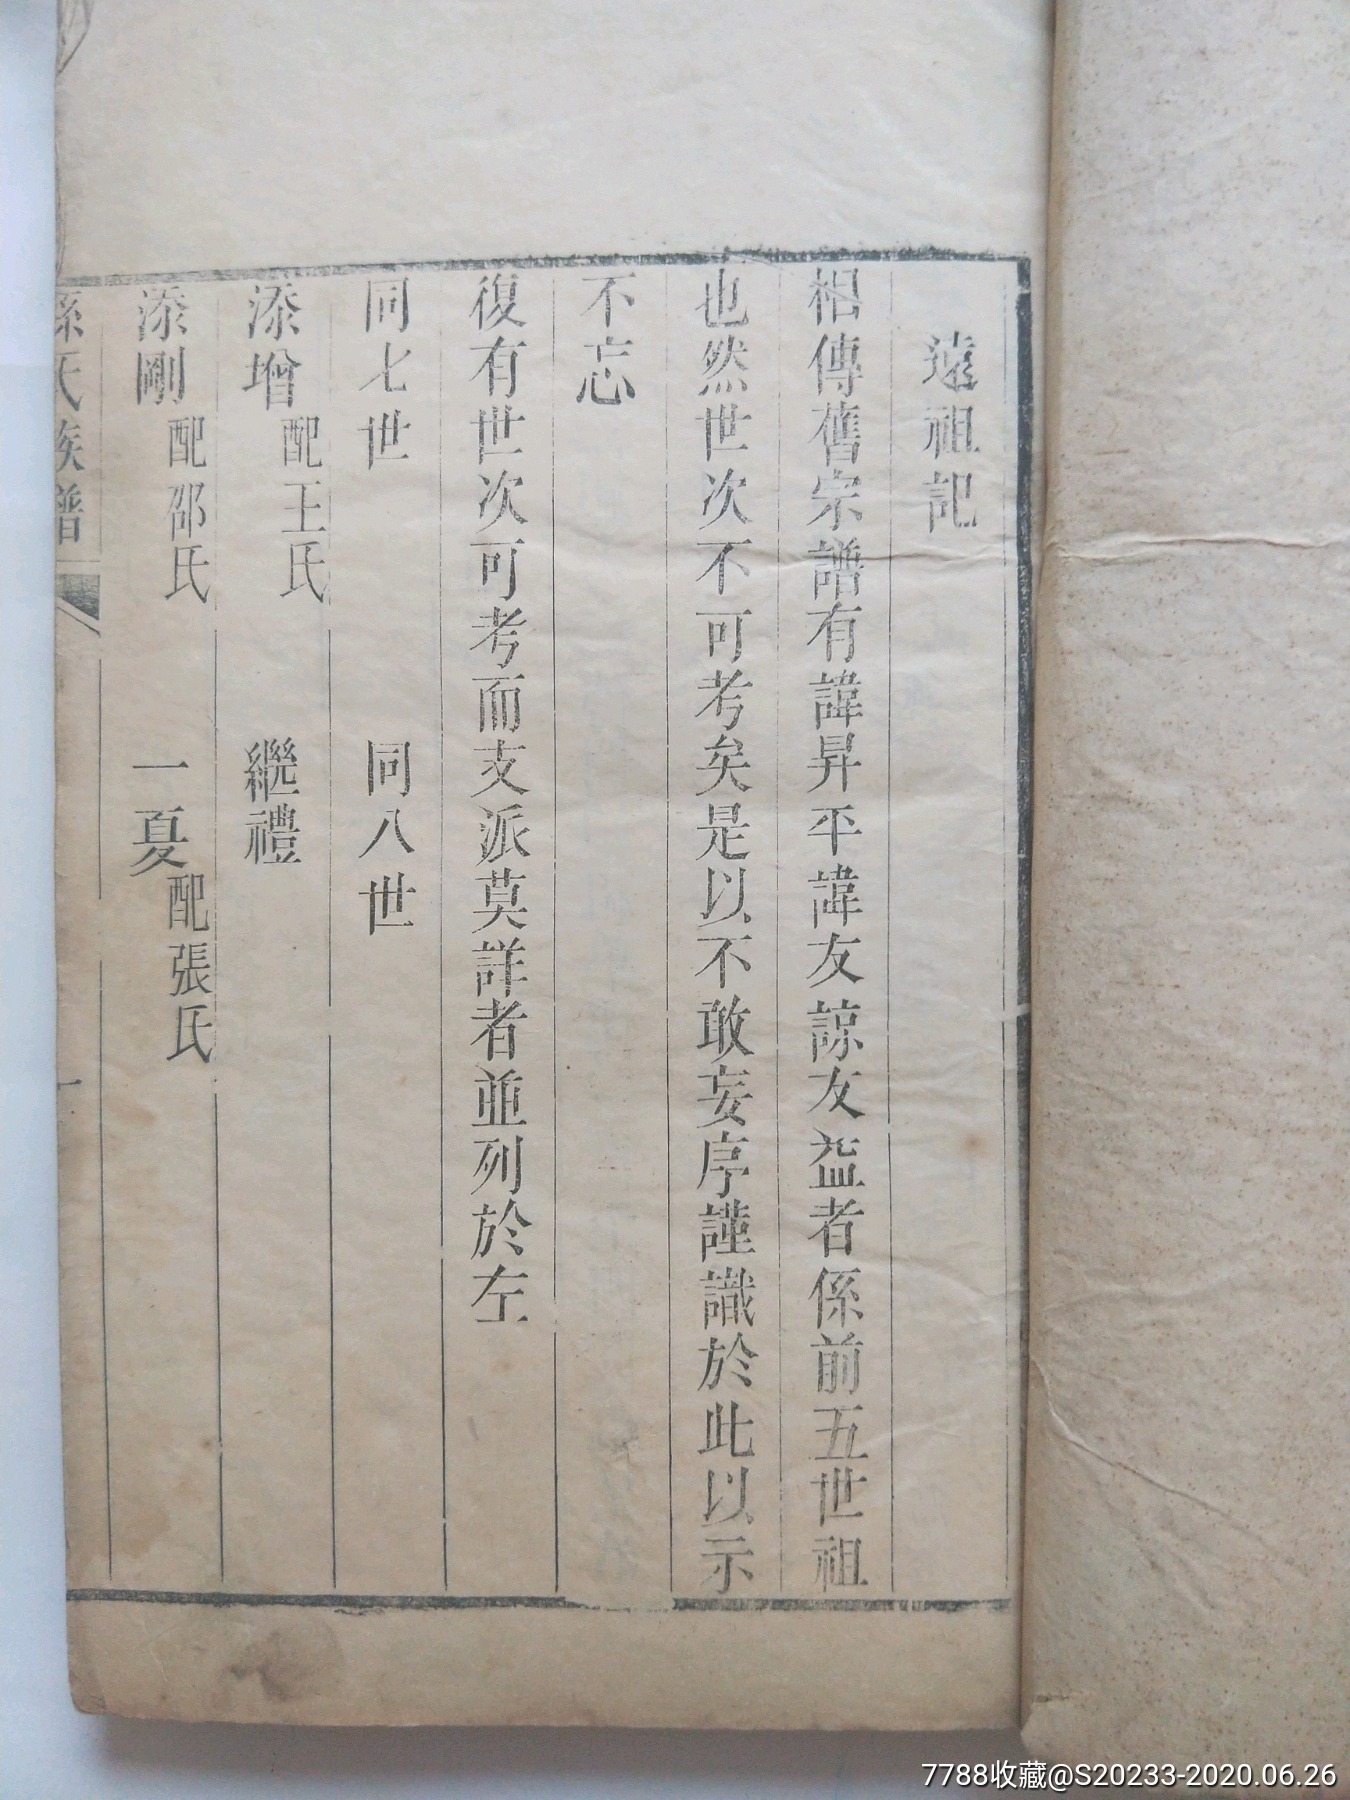 遠祖記
相傳舊宗譜有諱昇平諱友諒友益者係前五世祖
也然世次不可考矣是以不敢妄序謹識於此以示
不忘
復有世次可考而支派莫詳者並列於左
同七世　同八世
添增配王氏　繼禮
添剛配邵氏　一夏配張氏
孫氏族譜　一
7788收藏@S20233-2020.06.26